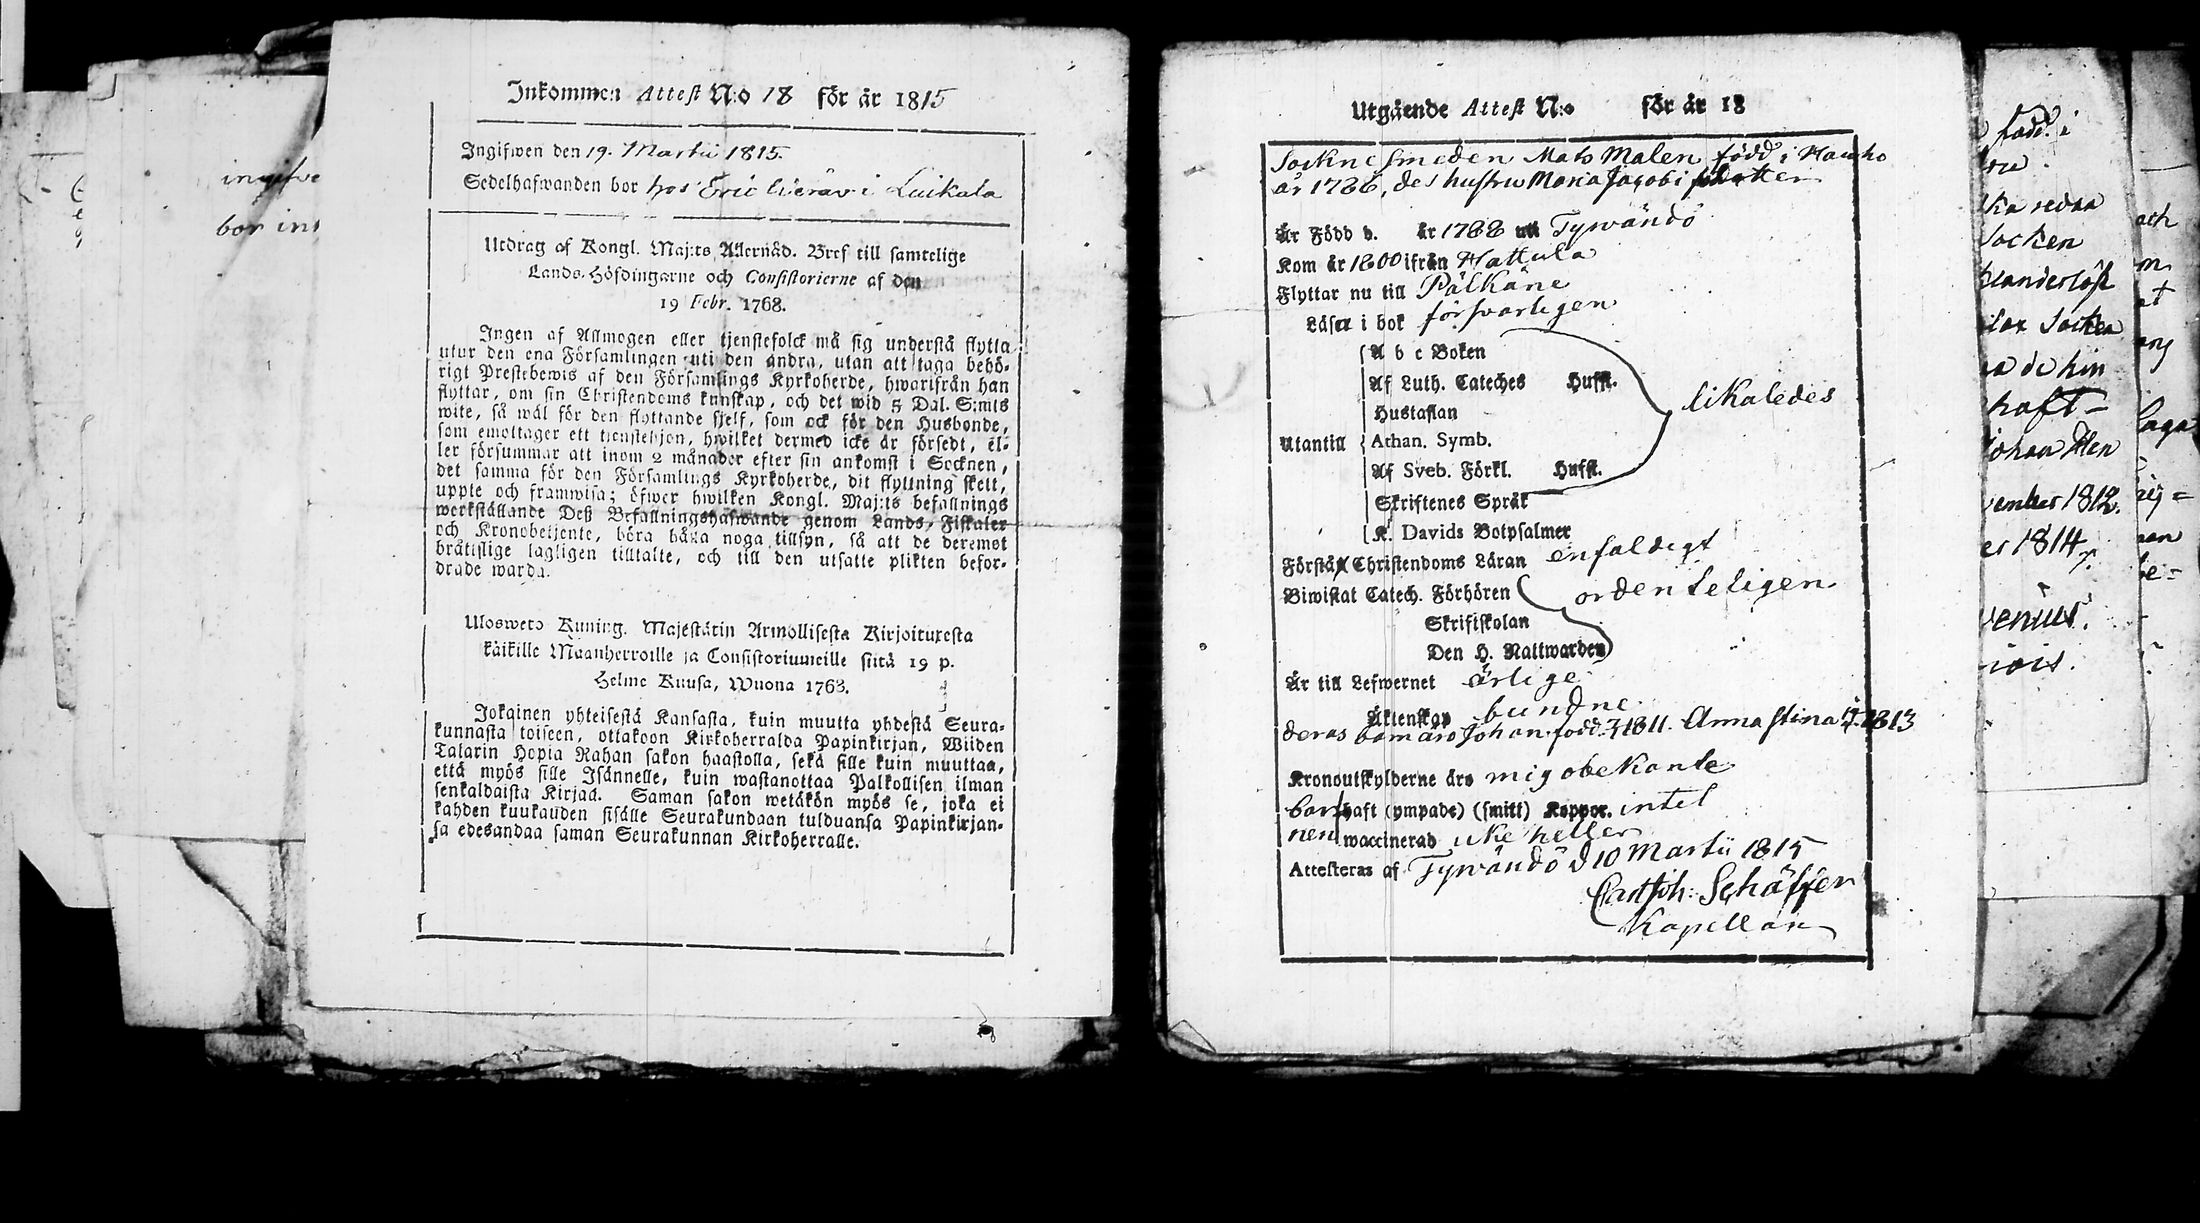 Inkommen Attest N:o 18 för år 1815
Ingifwen den 19. Martii 1815.
Sedelhafwanden bor hos Eric i Luikala
Utdrag af Kongl. Maj:ts Allernåd. Bref till samtelige
Lands-Höfdingarne och Consistorierne af den
19 Febr. 1768.
Ingen af Allmogen eller tjenstefolck må sig understå flytta
utur den ena Församlingen uti den andra, utan att taga behö-
rigt Prestebewis af den Församlings Kyrkoherde, hwarifrån han
flyttar, om sin Christendoms kunskap, och det wid 5 Dal. S:mts
wite, så wäl för den flyttande sjelf, som ock för den Husbonde,
som emottager ett tjenstehjon, hwilket dermed icke är försedt, el-
ler försummar att inom 2 månader efter sin ankomst i Socknen,
det samma för den Församlings Kyrkoherde, dit flyttning skett,
uppte och framwisa; öfwer hwilken Kongl. Maj:ts befallnings
werkställande Deß Befallningshafwande genom Lands-Fiskaler
och Kronobetjente, böra hålla noga tillsyn, så att de deremot
bråttslige lagligen tilltalte, och till den utsatte plikten befor-
drade warda.
Ulosweto Kuning. Majestätin Armollisesta Kirjoituxesta
kaikille Maanherroille ja Consistoriumeille siitä 19 p.
Helme Kuusa, Wuona 1763.
Jokainen yhteisestä Kansasta, kuin muutta yhdestä Seura-
kunnasta toiseen, ottakoon Kirkoherralda Papinkirjan, Wiiden
Talarin Hopia Rahan sakon haastolla, sekä sille kuin muuttaa,
että myös sille Isännelle, kuin wastanottaa Palkollisen ilman
senkaldaista Kirjaa. Saman sakon wetäkön myös se, joka ei
kahden kuukauden sisälle Seurakundaan tulduansa Papinkirjan-
sa edesandaa saman Seurakunnan Kirkoherralle.
Utgående Attest N:o för år 18
Sockne Smeden Mats Malen född i Hauho
år 1786, des hustru Maria Jacobi dotter
Är Född d. år 1788 uti Tyrwändö
Kom år 1800 ifrån Hattula
Flyttar nu till Pälkäne
Läser i bok försvarligen
A b c Boken
Af Luth. Cateches Hufst.
Hustaflan
likaledes
Utantill Athan. Symb.
Af Sveb. Förkl. Hufst.
Skriftenes Språk
K. Davids Botpsalmer
Förstår Christendoms Läran enfaldigt
Biwistat Catech. Förhören ordenteligen
Skriftskolan
Den H. Nattwarden
Är till Lefwernet ärlige
Äktenskap bundne
deras barn äro Johan född 1811. Anna Stina 1813
Kronoutskylderne äro mig obekante
bar haft (ympade) (smitt) Koppor. intet
nen waccinerad icke heller
Attesteras af Tyrwändö d 10 Martii 1815
Schäffer
Kapellan